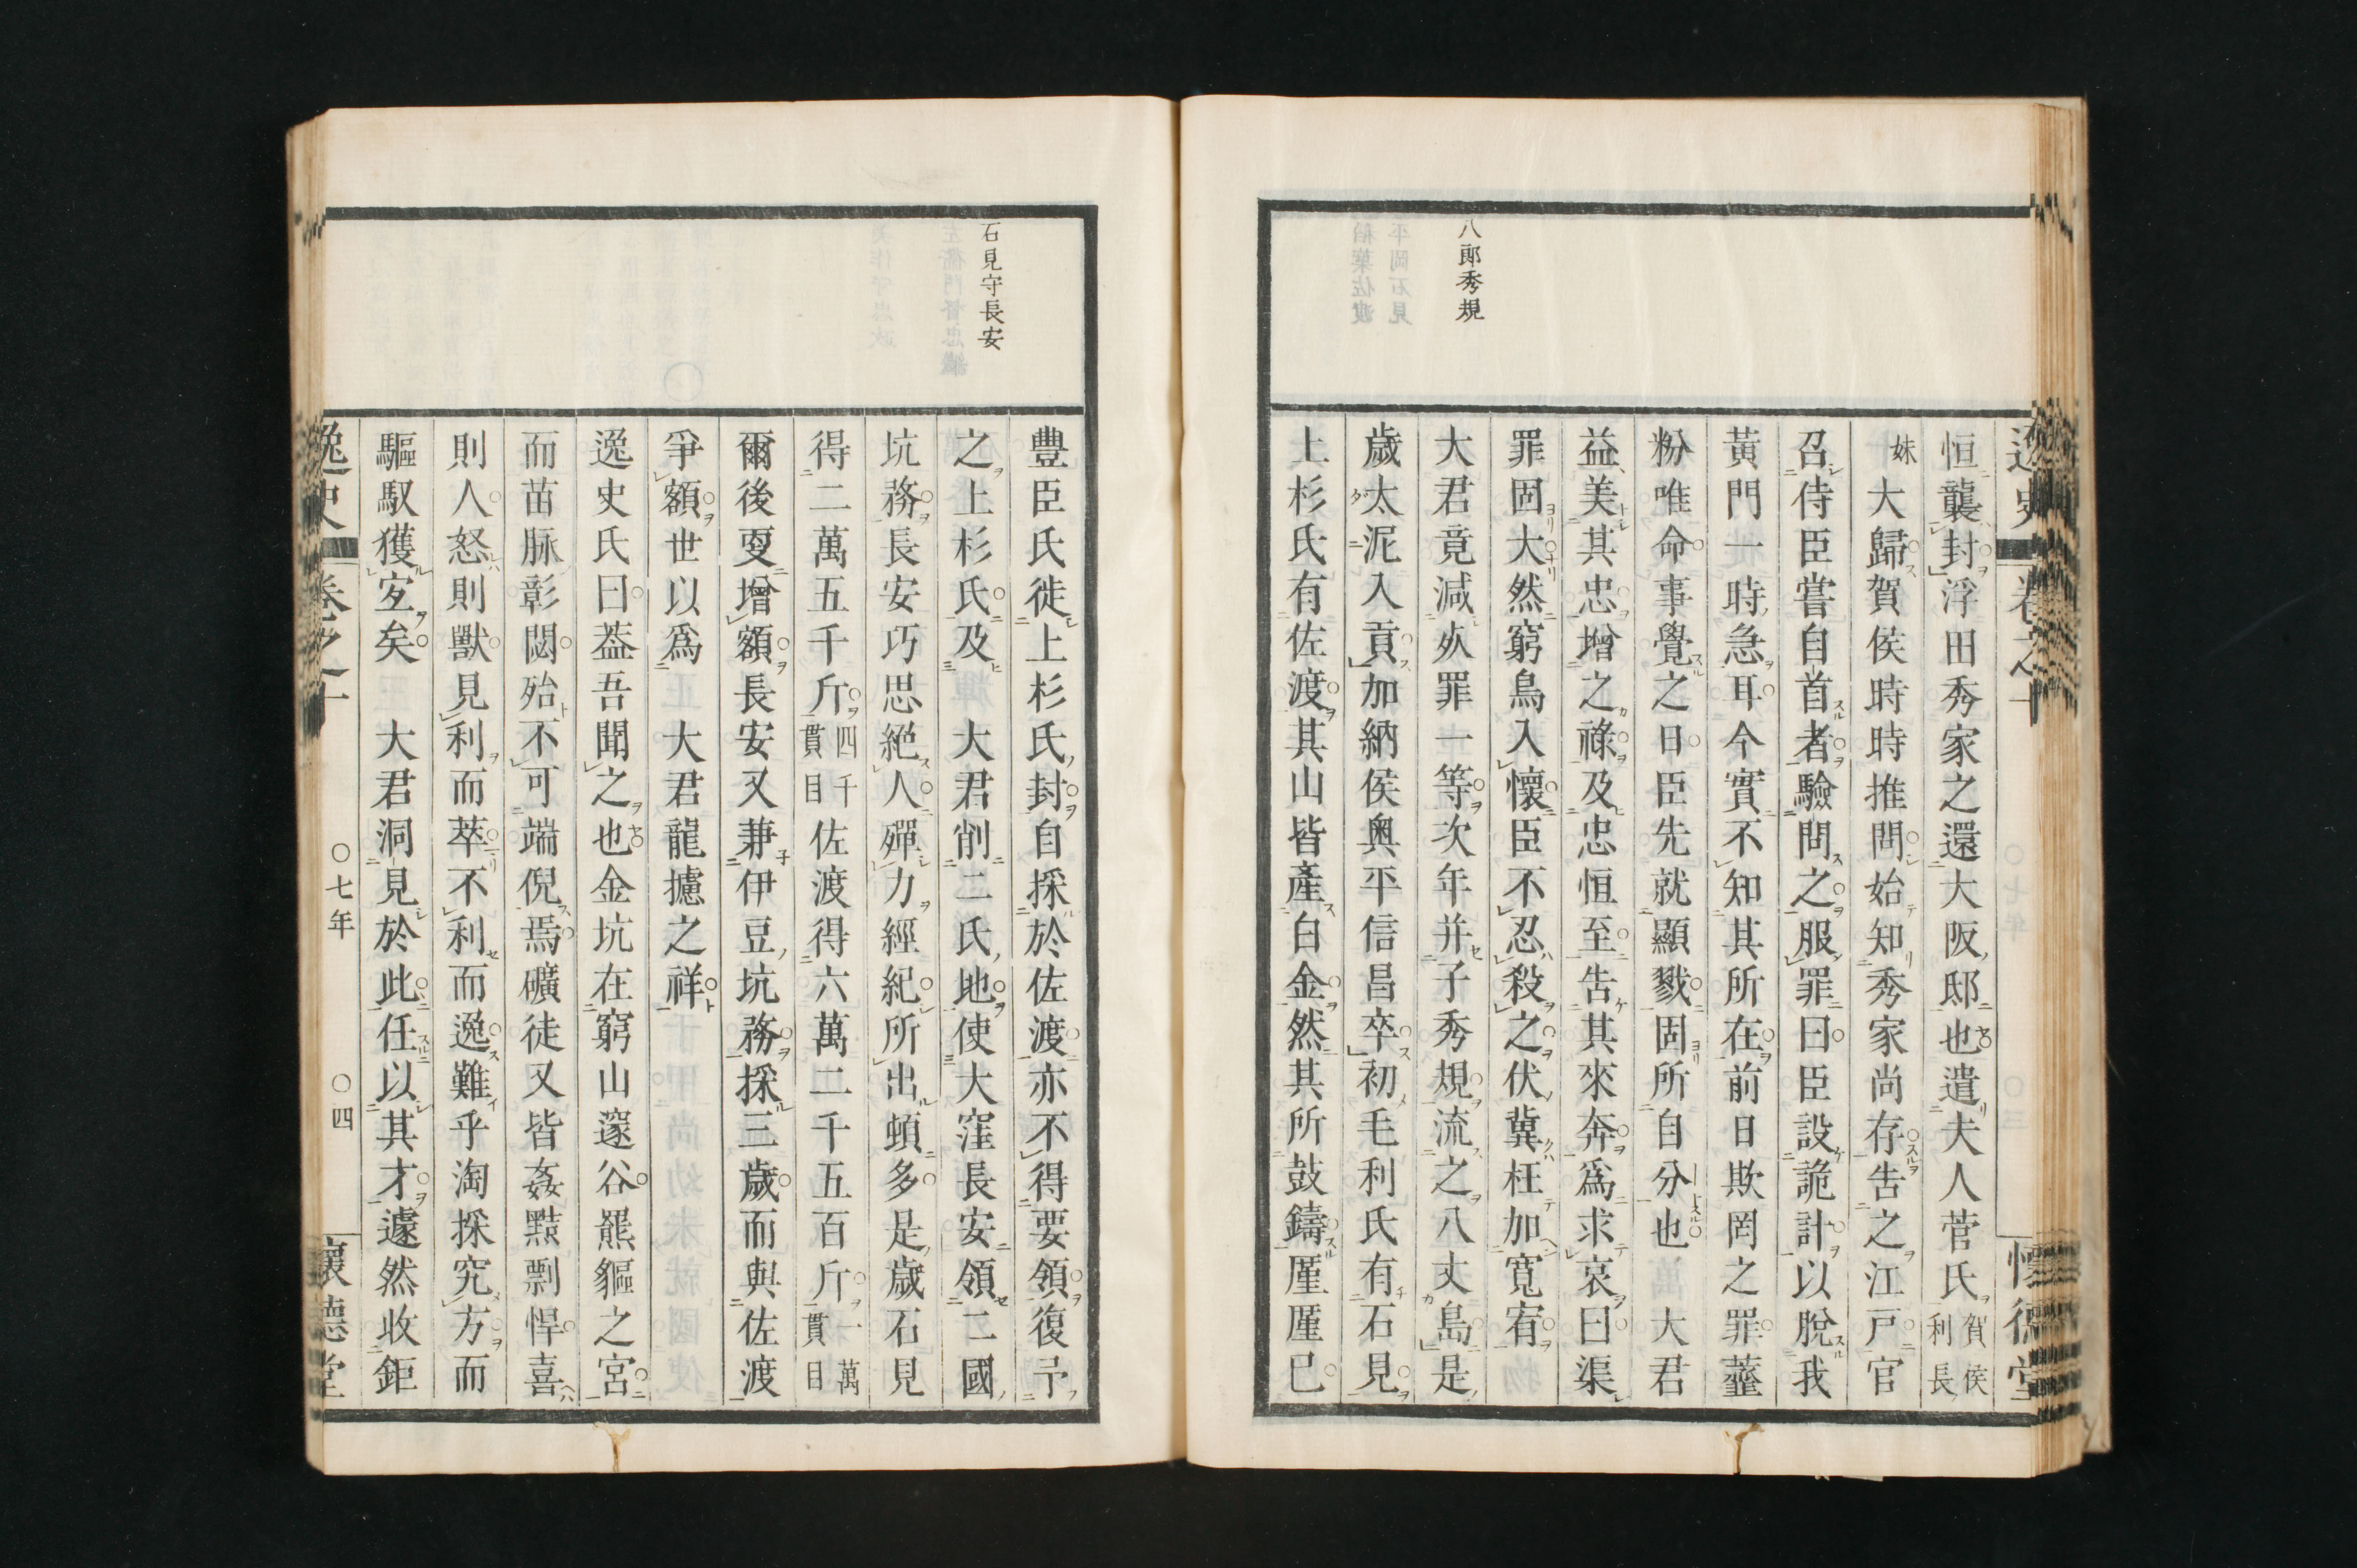 八郎秀規
恒襲封浮田秀家之還大阪邸也遣夫人菅氏賀侯利長
妹大歸賀侯時時推問始知秀家尚存告之江戸官
召侍臣嘗自首者驗問之服罪曰臣設詭計以脫我
黃門一時急耳今實不知其所在前日欺罔之罪虀
粉唯命事覺之日臣先就顯戮固所自分也　大君
益美其忠增之祿及忠恒至告其來奔爲求哀曰渠
罪固大然窮鳥入懷臣不忍殺之伏冀枉加寬宥
大君竟減死罪一等次年并子秀規流之八丈島是
歲太泥入貢加納侯奥平信昌卒初毛利氏有石見
上杉氏有佐渡其山皆產白金然其所鼓鑄厪厪已
石見守長安
豊臣氏徙上杉氏封自採於佐渡亦不得要領復予
之上杉氏及　大君削二氏地使大窪長安領二國
坑務長安巧思絕人殫力經紀所出頓多是歲石見
得二萬五千斤四千貫目佐渡得六萬二千五百斤一萬貫目
爾後叓增額長安又兼伊豆坑務採三歲而與佐渡
爭額世以爲　大君龍攄之祥
逸史氏曰葢吾聞之也金坑在窮山邃谷羆貙之宮
而苗脉彰閟殆不可端倪焉礦徒又皆姦黠剽悍喜
則人怒則獸見利而萃不利而逸難乎淘採究方而
驅馭獲宐矣　大君洞見於此任以其才遽然收鉅
逸史　卷之十　〇七年　〇四　懷德堂